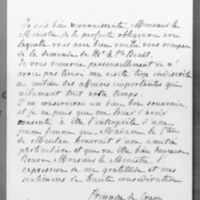 Je suis bien reconnaissante, Monsieur le
Ministre de la parfaite obligeance avec
laquelle vous avez bien voulu vous occuper
de la demande de Mr le Pce
Je vous remercie personnellement de n'
avoir pas trouvé ma visite trop indiscrète
au milieu des affaires importantes qui
réclament tout votre temps.
J'en conserverai un bon souvenir,
et je ne puis que vous d'avoir
consenti à être l'interprète d'une
jeune femme que Madame la
de Meulan honorait d'une amitié
particulière et que on être bien
Monsieur le Ministre,
l'expression de ma gratitude et mes
sentiments de haute considération
Princesse de